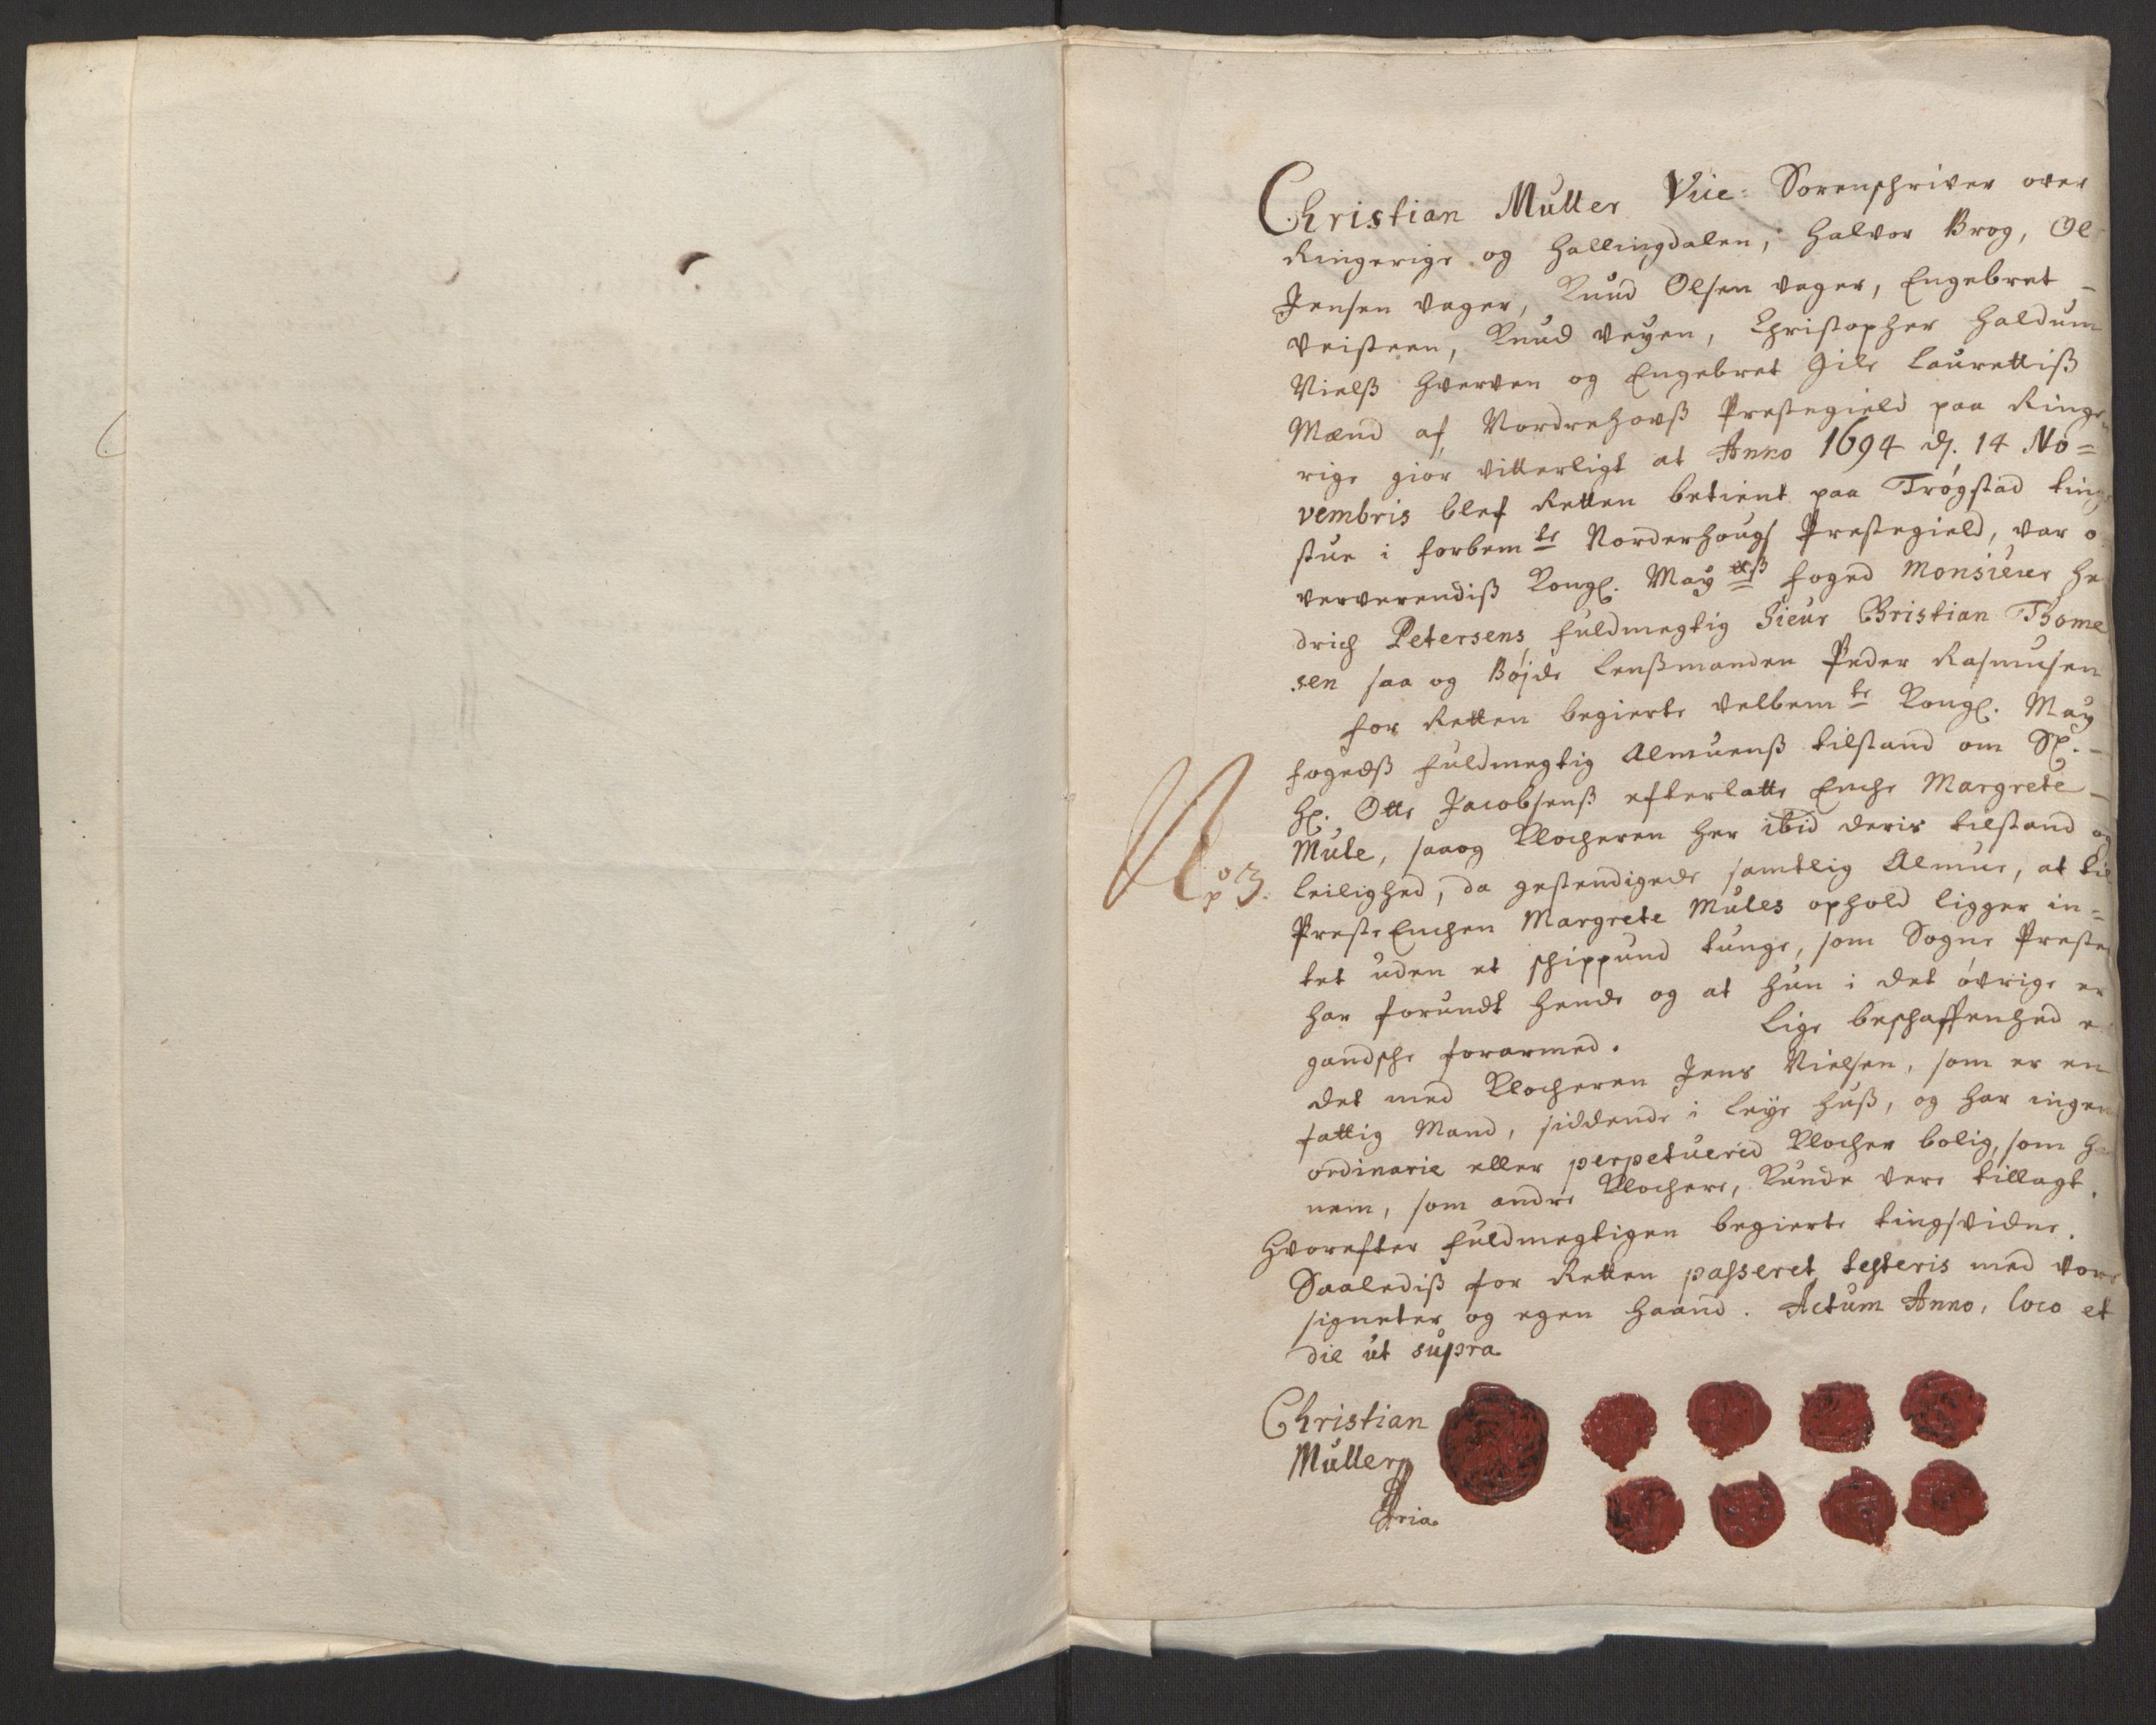 Christian Muller Vice: Sorenschriver over
Ringerige og Hallingdalen, Halvor Brog, Ol
Jensen Vager, Knud Olsen Vager, Engebret -
Veisteen, Knud Veyen, Christopher Haldum
Nielß Hverven og Engebret Gile Laurettiß
Mænd af Nordrehovß Prestegield paa Ringe
rige giör vitterligt at Anno 1694 d. 14 No=
vembris blef Retten betient paa Trögstad ting
stue i forbem.te Norderhougs Prestegield, var o
ververendiß Kongl. May.ttß foged Monsieur He
drich Petersens fuldmegtig Sieur Christian Thome
sen saa og Böjde Lenßmanden Peder Rasmusen
for Retten begierte velbem.te Kongl. May
fogedß fuldmegtig Almuenß tilstand om Sl. -
Hr. Otte Jacobsenß efterlatte Enche Margrete -
Mule, saaog Klocheren her ibid deris tilstand og
No 3. leilighed, da gestendigede samtlig Almue, at til
Preste Enchen Margrete Mules ophold ligger in=
tet uden et schippund tunge, som Sogne Preste
har forundt hende og at hun i det övrige er
gandsche forarmed. Lige beschaffenhed e
det med Klocheren Jens Nielsen, som er en
fattig Mand, siddende i leye huß, og har ingen
ordinarie eller perpetuerid Klocher bolig, som ha
nem, som andre Klochere, Kunde vere tillagt.
Hvorefter fuldmegtigen begierte tingsvidne.
Saalediß for Retten passeret testeris med vore
signeter og egen haand. Actum Anno, loco et
die ut supra
Christian
Muller